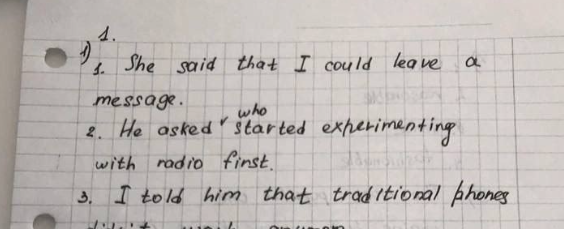 1.
1) 1. She said that I could leave a
message.
who
2. He asked ˅ started experimenting
with radio first.
3. I told him that traditional phones